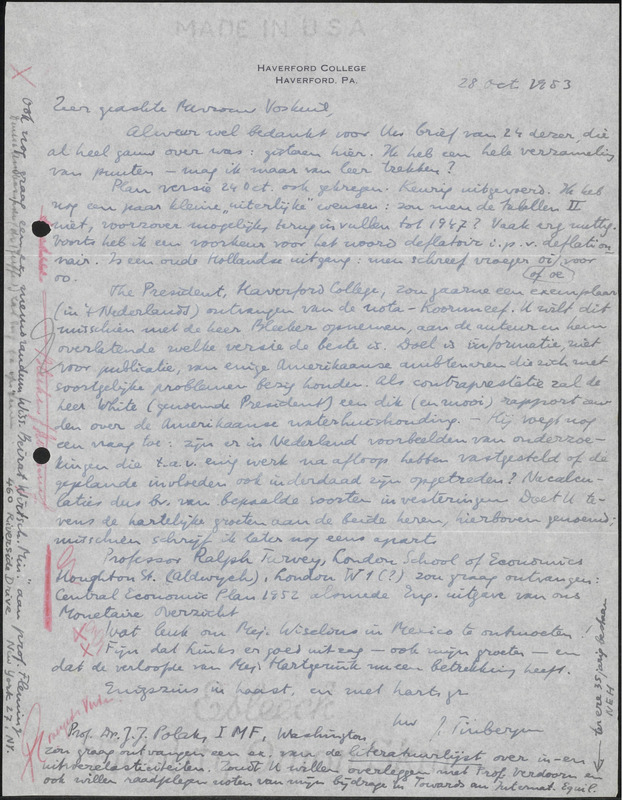 MADE IN U S A
HAVERFORD COLLEGE
HAVERFORD, PA.
28 Oct 1953
Zeer geachte Mevrouw Voskuil,
Alweer wel bedankt voor Uw brief van 24 dezer, die
al heel gauw over was: gisteren hier. Ik heb een hele verzameling
van punten – mag ik maar van leer trekken?
Plan versie 24 Oct. ook gekregen. Keurig uitgevoerd. Ik heb
nog een paar kleine „uiterlijke” wensen: zou men de tabellen II
niet, voorzover mogelijk, terug invullen tot 1947? Vaak erg nuttig.
Voorts heb ik een voorkeur voor het woord deflatoir i.p.v. deflation-
nair. Is een oude Hollandse uitgang: men schreef vroeger oi voor
oo. (of oe)
The President, Haverford College, zou gaarne een exemplaar
(in 't Nederlands) ontvangen van de nota-Koornneef. U wilt dit
misschien met de heer Bleeker opnemen, aan de auteur en hem
overlatende welke versie de beste is. Doel is informatie, niet
voor publicatie, van enige Amerikaanse ambtenaren die zich met
soortgelijke problemen bezig houden. Als contraprestatie zal de
heer White (genoemde President) een dik (en mooi) rapport zen-
den over de Amerikaanse waterhuishouding. – Hij voegt nog
een vraag toe: zijn er in Nederland voorbeelden van onderzoe-
kingen die t.a.v. enig werk na afloop hebben vastgesteld of de
geplande invloeden ook inderdaad zijn opgetreden? Nacalcu-
laties dus bv. van bepaalde soorten investeringen. Doet U te-
vens de hartelijke groeten aan de beide heren, hierboven genoemd;
misschien schrijf ik later nog eens apart.
Professor Ralph Turvey, London School of Economics
Houghton St. (Aldwych), London W 1 (?) zou graag ontvangen:
Central Economic Plan 1952 alsmede Eng. uitgave van ons
Monetaire overzicht
Wat leuk om Mej. Wiselius in Mexico te ontmoeten!
Fijn dat Links er goed uitzag – ook mijn groeten – en
dat de verloofde van Mej. Hartgerink nu een betrekking heeft.
Enigszins in haast, en met hart. gr.
Uw J. Tinbergen
Prof. Dr. J.J. Polak, IMF, Washington
zou graag ontvangen een ex. van de literatuurlijst over in- en
uitvoerelasticiteiten. Zoudt U willen overleggen met Prof. Verdoorn en
ook willen raadplegen noten van mijn bijdrage in Towards an Internat. Equil.
ook nog graag memorandum Wiss. Beirat Wirtsch. Min." aan prof. Fleming
460 Riverside Drive New York 27. NY.
NEH